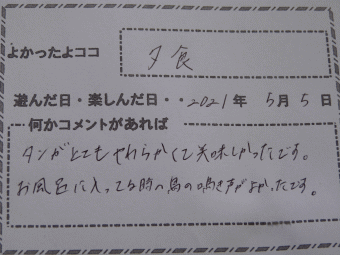 よかったよココ 夕食
遊んだ日・楽しんだ日・・2021年 5月 5日
何かコメントがあれば
タンがとてもやわらかくて美味しかったです。
お風呂に入ってる時の鳥の鳴き声がよかったです。